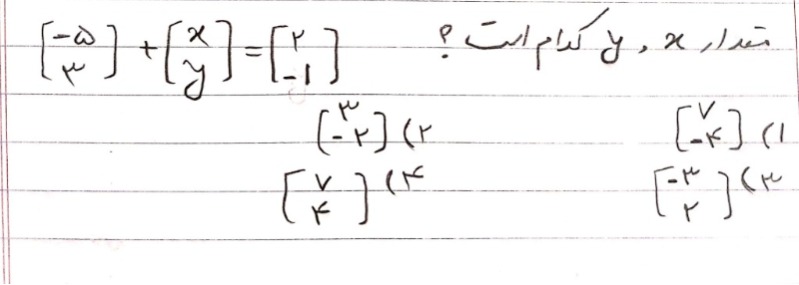 مقدار x و y کدام است ؟ [-۵ ۳] + [x y] = [۲ -۱]
۱) [۷ -۴] ۲) [۳ -۲]
۳) [-۳ ۲] ۴) [۷ ۴]